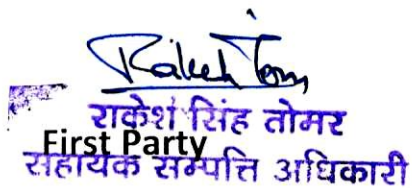 Rakesh Tomar
राकेश सिंह तोमर
First Party
सहायक सम्पत्ति अधिकारी